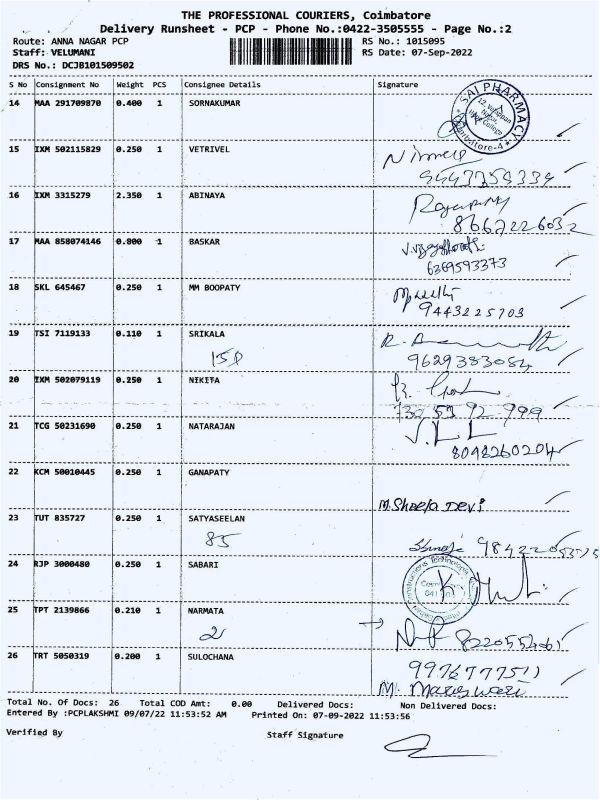 THE PROFESSIONAL COURIERS, Coimbatore
Delivery Runsheet - PCP - Phone No.:0422-3505555 - Page No.:2
Route: ANNA NAGAR PCP RS No.: 1015095
Staff: VELUMANI RS Date: 07-Sep-2022
DRS No.: DCJB101509502
S No Consignment No Weight PCS Consignee Details Signature
14 MAA 291709870 0.400 1 SORNAKUMAR
SAI PHARMACY
15 IXM 502115829 0.250 1 VETRIVEL
16 IXM 3315279 2.350 1 ABINAYA
8667226032
17 MAA 858074146 0.800 1 BASKAR
6369593373
18 SKL 645467 0.250 1 MM BOOPATY
9443225703
19 TSI 7119133 0.110 1 SRIKALA
9629383084
20 IXM 502079119 0.250 1 NIKITA
21 TCG 50231690 0.250 1 NATARAJAN
8098260204
22 KCM 50010445 0.250 1 GANAPATY
M. Sheeja Devi
23 TUT 835727 0.250 1 SATYASEELAN
85
24 RJP 3000480 0.250 1 SABARI
25 TPT 2139866 0.210 1 NARMATA
2
26 TRT 5050319 0.200 1 SULOCHANA
M. Mareswari
Total No. Of Docs: 26 Total COD Amt: 0.00 Delivered Docs: Non Delivered Docs:
Entered By :PCPLAKSHMI 09/07/22 11:53:52 AM Printed On: 07-09-2022 11:53:56
Verified By Staff Signature